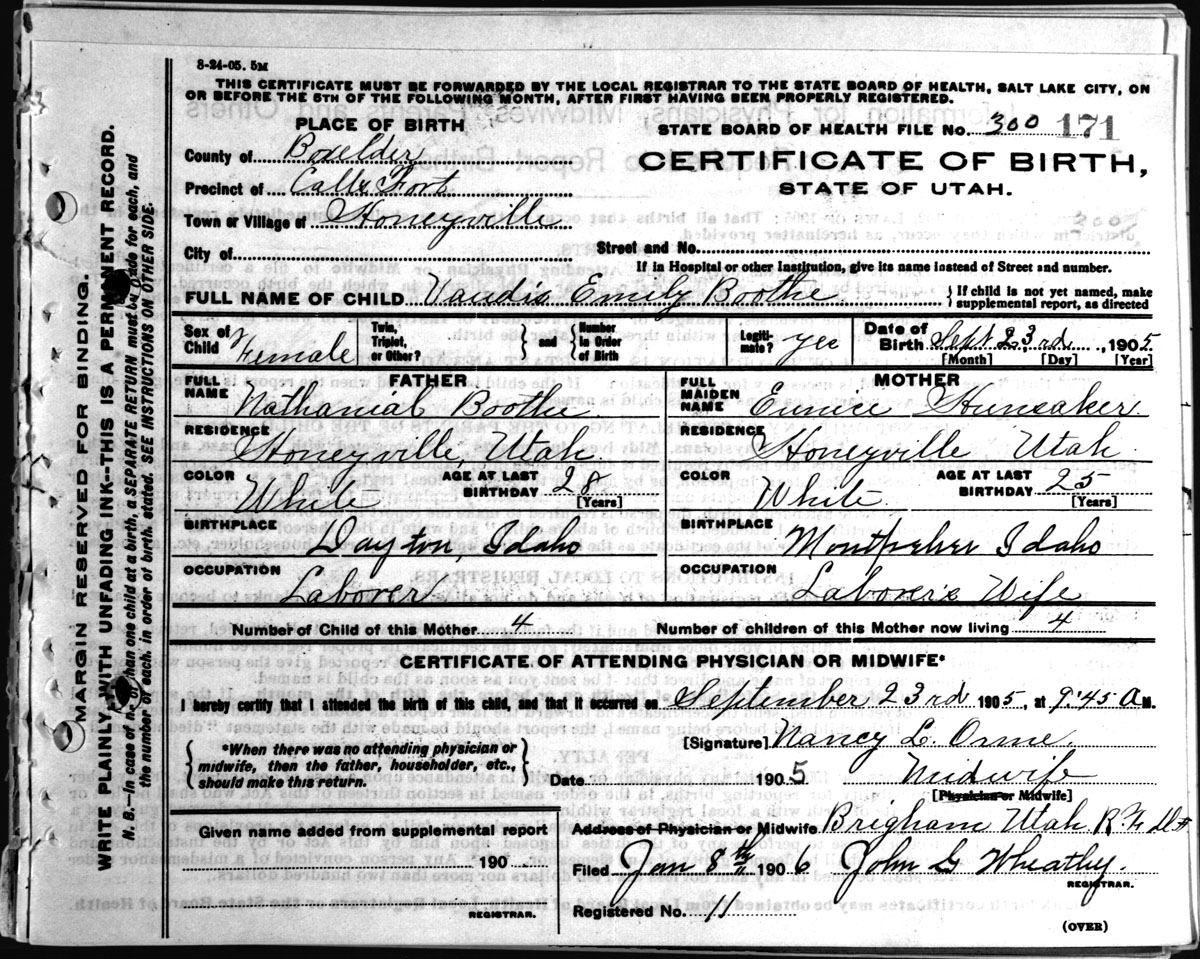 8-24-05. 5M
THIS CERTIFICATE MUST BE FORWARDED BY THE LOCAL REGISTRAR TO THE STATE BOARD OF HEALTH, SALT LAKE CITY, ON
OR BEFORE THE 5TH OF THE FOLLOWING MONTH, AFTER FIRST HAVING BEEN PROPERLY REGISTERED.
PLACE OF BIRTH
STATE BOARD OF HEALTH FILE No. 300 171
County of Boxelder
CERTIFICATE OF BIRTH,
Precinct of Calls Fort
STATE OF UTAH.
Town or Village of Honeyville
City of
Street and No.
If in Hospital or other Institution, give its name instead of Street and number.
FULL NAME OF CHILD Vaudis Emily Boothe
} If child is not yet named, make supplemental report, as directed
Sex of Child Female
Twin, Triplet, or Other? } and { Number in Order of Birth
Legitimate? yes
Date of Birth Sept 23rd, 1905
[Month] [Day] [Year]
FATHER
FULL NAME Nathanial Boothe
RESIDENCE Honeyville, Utah.
COLOR White
AGE AT LAST BIRTHDAY 28
[Years]
BIRTHPLACE Dayton, Idaho
OCCUPATION Laborer
MOTHER
FULL MAIDEN NAME Eunice Hunsaker.
RESIDENCE Honeyville Utah
COLOR White
AGE AT LAST BIRTHDAY 25
[Years]
BIRTHPLACE Montpelier Idaho
OCCUPATION Laborer's Wife
Number of Child of this Mother 4
Number of children of this Mother now living 4
CERTIFICATE OF ATTENDING PHYSICIAN OR MIDWIFE*
I hereby certify that I attended the birth of this child, and that it occurred on September 23rd 1905, at 9:45 A M.
{ *When there was no attending physician or midwife, then the father, householder, etc., should make this return. }
[Signature] Nancy L. Orme,
Date 1905 Midwife
[Physician or Midwife]
Given name added from supplemental report
190
REGISTRAR.
Address of Physician or Midwife Brigham Utah R F D #
Filed Jan 8th 1906 John G Wheatley.
REGISTRAR.
Registered No. 11
(OVER)
MARGIN RESERVED FOR BINDING.
WRITE PLAINLY, WITH UNFADING INK--THIS IS A PERMANENT RECORD.
N. B.--In case of more than one child at a birth, a SEPARATE RETURN must be made for each, and
the number of each, in order of birth, stated. SEE INSTRUCTIONS ON OTHER SIDE.